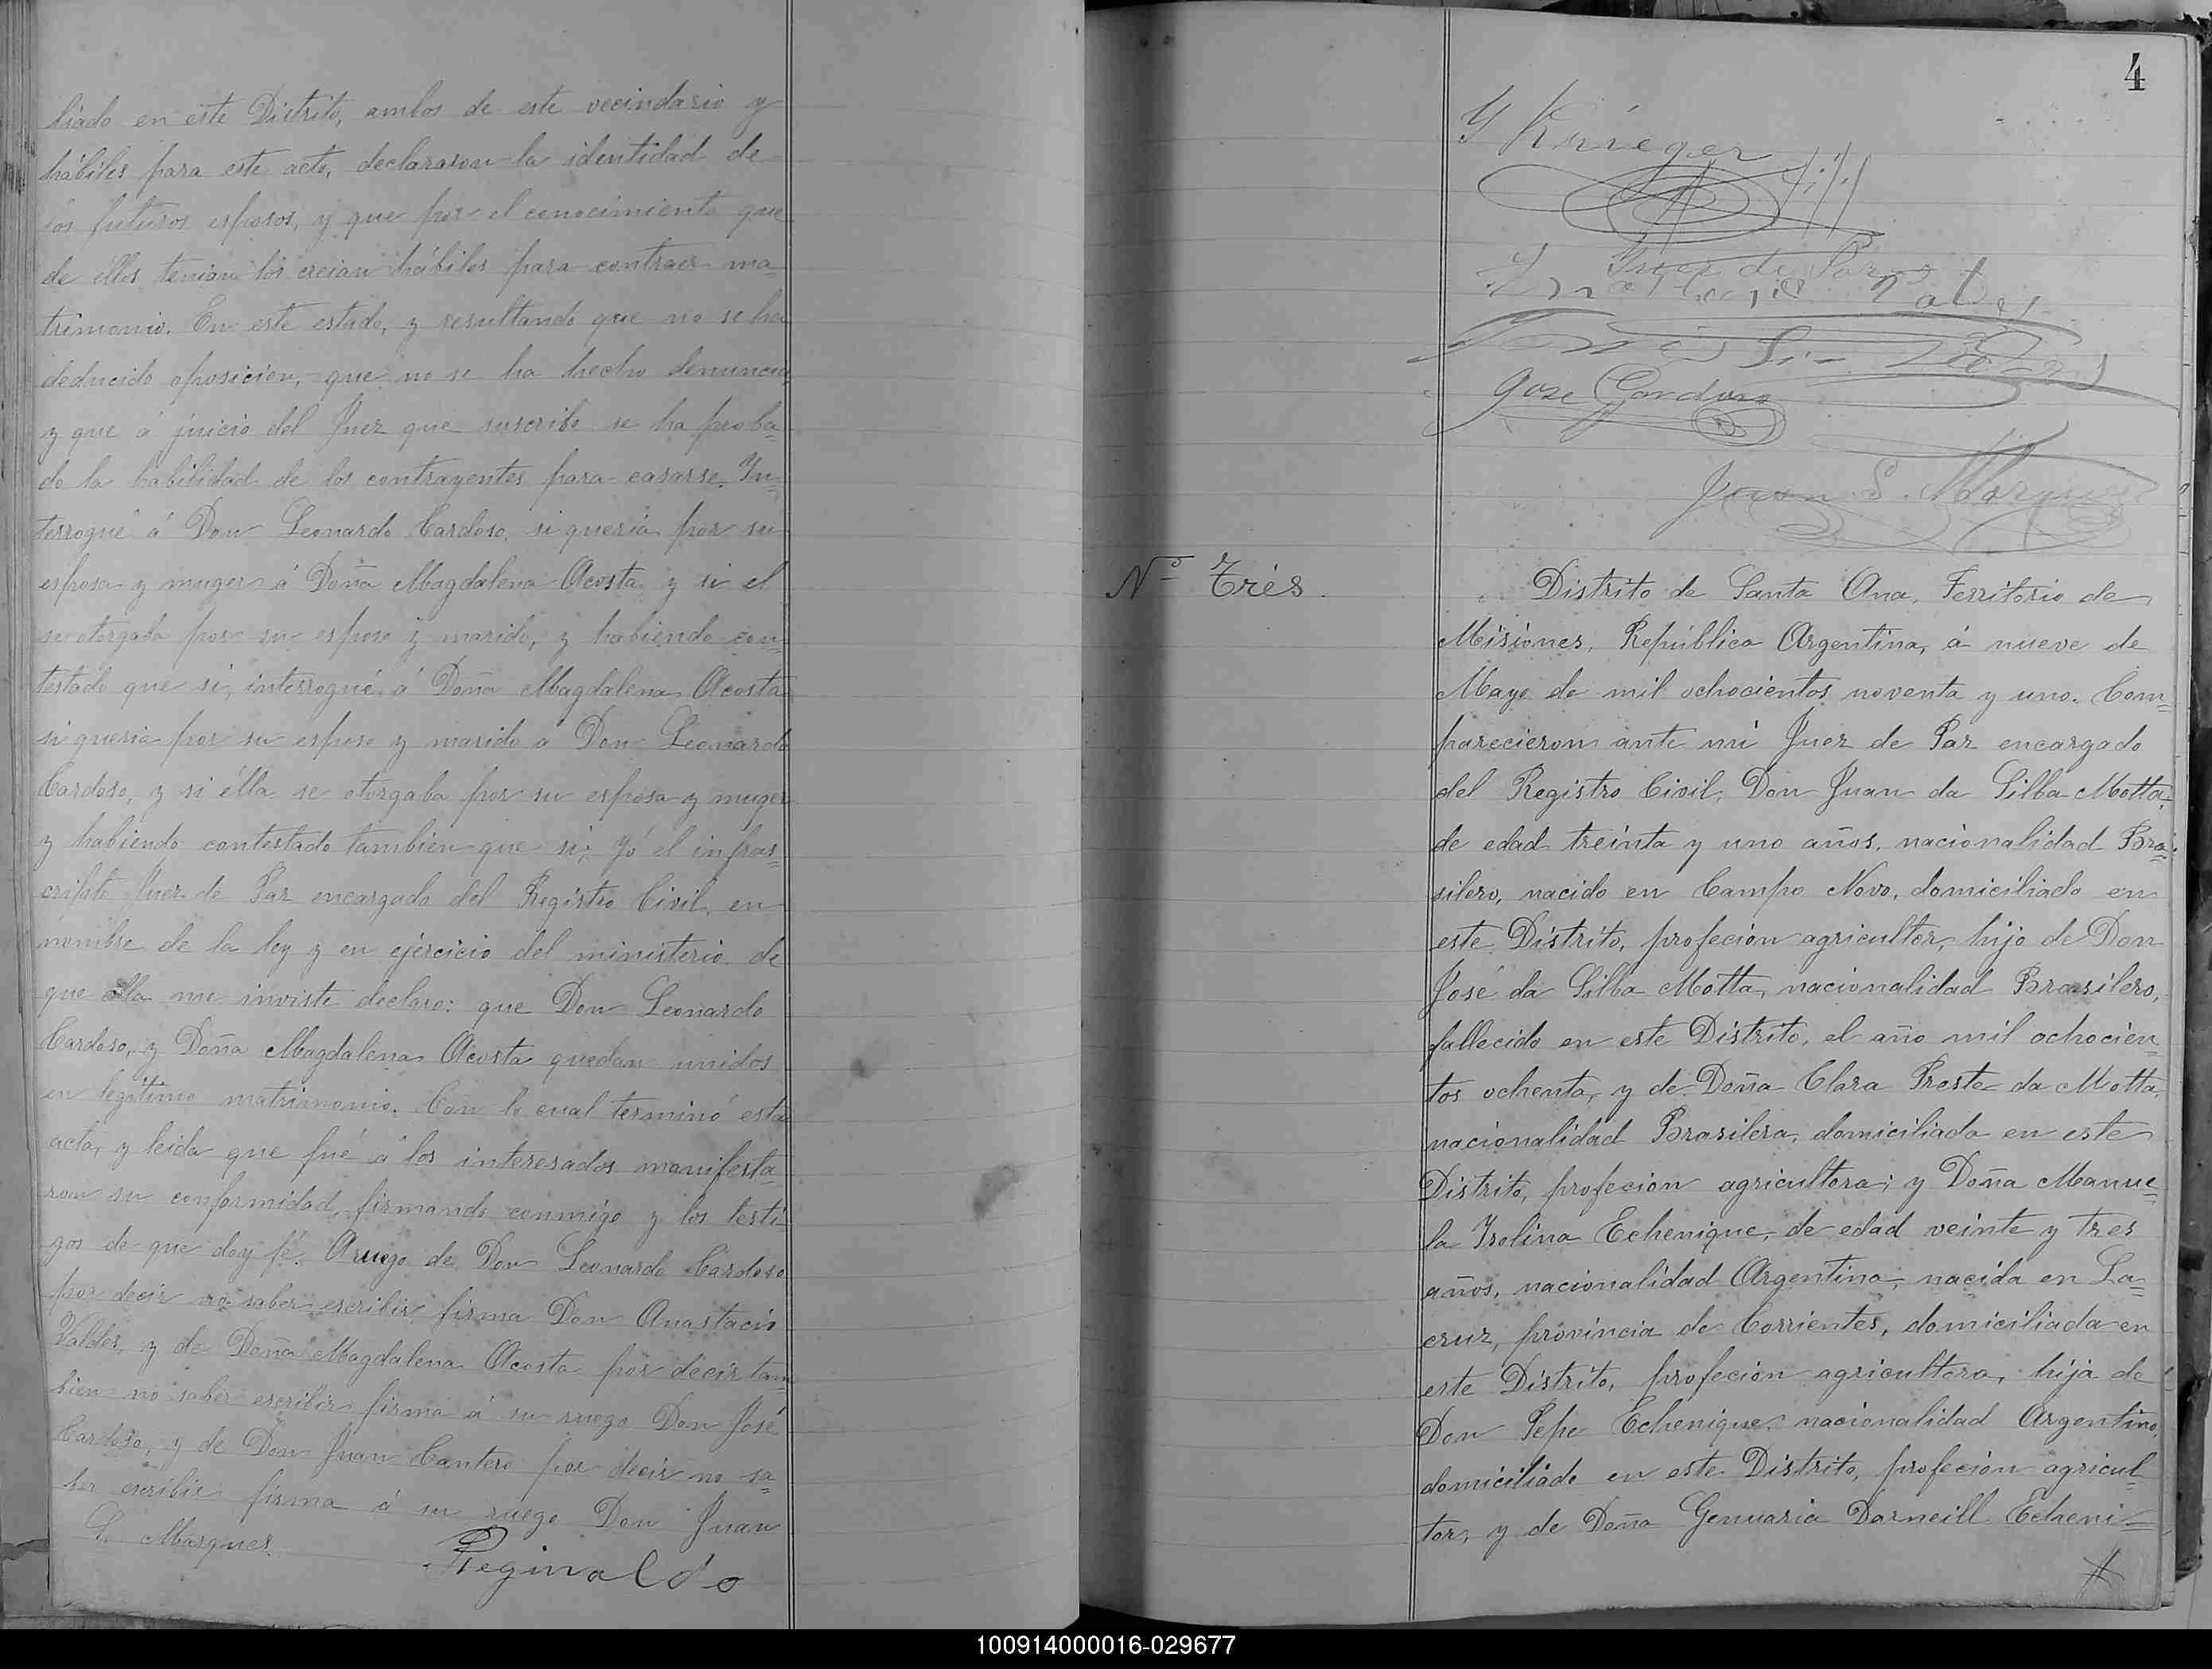 liado en este Distrito, ambos de este vecindario y
hábiles para este acto, declararon la identidad de
los futuros esposos, y que por el conocimiento que
de ellos tenian los creian hábiles para contraer ma=
trimonio. En este estado, y resultando que no se ha
deducido oposicion, que no se ha hecho denuncia,
y que á juicio del Juez que suscribe se ha proba=
do la habilidad de los contrayentes para casarse. In=
terrogué á Don Leonardo Cardoso, si queria por su
esposa y muger á Doña Magdalena Acosta y si el
se otorgaba por su esposo y marido, y habiendo con=
testado que si, interrogué á Doña Magdalena Acosta
si queria por su esposo y marido á Don Leonardo
Cardoso, y si élla se otorgaba por su esposa y muger
y habiendo contestado tambien que si; Yó el infras=
cripto Juez de Paz encargado del Registro Civil, en
nombre de la ley y en ejercicio del ministerio de
que ella me inviste declaro: que Don Leonardo
Cardoso, y Doña Magdalena Acosta quedan unidos
en legítimo matrimonio. Con lo cual terminó esta
acta, y leida que fué á los interesados manifesta=
ron su conformidad, firmando conmigo y los testi=
gos de que doy fé. Aruego de Don Leonardo Cardoso
por decir no saber escribir firma Don Anastacio
Valdes, y de Doña Magdalena Acosta por decir tam=
bien no saber escribir firma á su ruego Don José
Cardoso, y de Don Juan Cantero por decir no sa=
ber escribir firma á su ruego Don Juan
S. Marques.
Reginaldo
4
Y Krüeger
Juez de Paz
Jose Cardoso
Juan S. Marques
Nº Trés.
Distrito de Santa Ana, Territorio de
Misiones, República Argentina, á nueve de
Mayo de mil ochocientos noventa y uno. Com=
parecieron ante mi Juez de Paz encargado
del Registro Civil, Don Juan da Silba Motta,
de edad treinta y uno años, nacionalidad Bra=
silero, nacido en Campo Novo, domiciliado en
este Distrito, profecion agricultor, hijo de Don
José da Silba Motta, nacionalidad Brasilero,
fallecido en este Distrito, el año mil ochocien=
tos ochenta, y de Doña Clara Preste da Motta,
nacionalidad Brasilera, domiciliada en este
Distrito, profecion agricultora; y Doña Manue=
la Isolina Echenique, de edad veinte y tres
años, nacionalidad Argentina, nacida en La=
cruz, provincia de Corrientes, domiciliada en
este Distrito, profecion agricultora, hija de
Don Pepe Echenique, nacionalidad Argentino,
domiciliado en este Distrito, profecion agricul=
tor, y de Doña Genuaria Darneill Echeni=
100914000016-029677